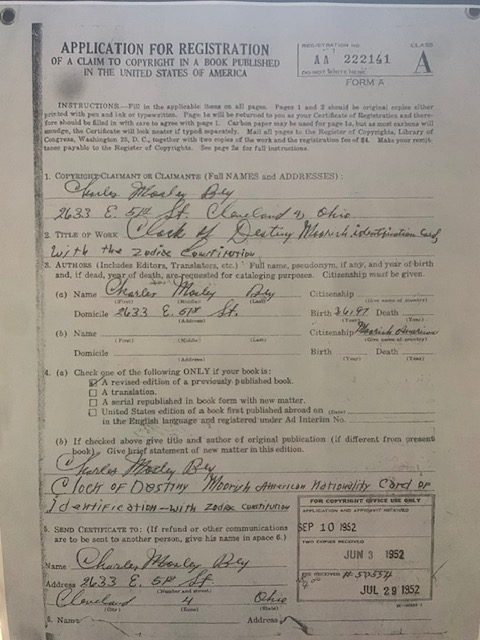 APPLICATION FOR REGISTRATION
OF A CLAIM TO COPYRIGHT IN A BOOK PUBLISHED
IN THE UNITED STATES OF AMERICA
REGISTRATION NO.
CLASS
AA 222141
A
DO NOT WRITE HERE
FORM A
INSTRUCTIONS.—Fill in the applicable items on all pages. Pages 1 and 2 should be original copies either
printed with pen and ink or typewritten. Page 1a will be returned to you as your Certificate of Registration and there-
fore should be filled in with care to agree with page 1. Carbon paper may be used for page 1a, but as most carbons will
smudge, the Certificate will look neater if typed separately. Mail all pages to the Register of Copyrights, Library of
Congress, Washington 25, D. C., together with two copies of the work and the registration fee of $4. Make your remit-
tance payable to the Register of Copyrights. See page 2a for full instructions.
1. COPYRIGHT CLAIMANT OR CLAIMANTS (Full NAMES and ADDRESSES):
Charles Mosley Bey
2633 E. 51st St. Cleveland 4, Ohio
2. TITLE OF WORK Clock of Destiny Moorish identification Card,
With the Zodiac Constitution
3. AUTHORS (Includes Editors, Translators, etc.) Full name, pseudonym, if any, and year of birth
and, if dead, year of death, are requested for cataloging purposes. Citizenship must be given.
(a) Name Charles Mosley Bey Citizenship
(First) (Middle) (Last) (Give name of country)
Domicile 2633 E. 51st St. Birth Death
(Address) (Year) (Year)
(b) Name Citizenship Moorish American
(First) (Middle) (Last) (Give name of country)
Domicile Birth Death
(Address) (Year) (Year)
4. (a) Check one of the following ONLY if your book is:
A revised edition of a previously published book.
A translation.
A serial republished in book form with new matter.
United States edition of a book first published abroad on (Date)
in the English language and registered under Ad Interim No.
(b) If checked above give title and author of original publication (if different from present
book). Give brief statement of new matter in this edition.
Charles Mosley Bey
Clock of Destiny Moorish American Nationality Card of
Identification - with Zodiac Constitution
FOR COPYRIGHT OFFICE USE ONLY
APPLICATION AND AFFIDAVIT RECEIVED
SEP 10 1952
TWO COPIES RECEIVED
JUN 3 1952
FEE RECEIVED #50554
JUL 29 1952
5. SEND CERTIFICATE TO: (If refund or other communications
are to be sent to another person, give his name in space 6.)
Name Charles Mosley Bey
Address 2633 E. 51st St
(Number and street)
Cleveland 4 Ohio
(City) (Zone) (State)
6. Name Address